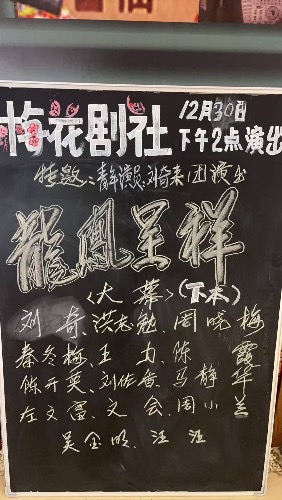 梅花剧社
12月30日
下午2点演出
特邀:青年演员:刘奇来团演出
龍鳳呈祥
<大幕>(下本)
刘奇、洪志勉、周晓梅
秦冬梅、王力、陈霞
陈开英、刘佐香、马静华
左文富、文会、周小兰
吴金明、汪汪